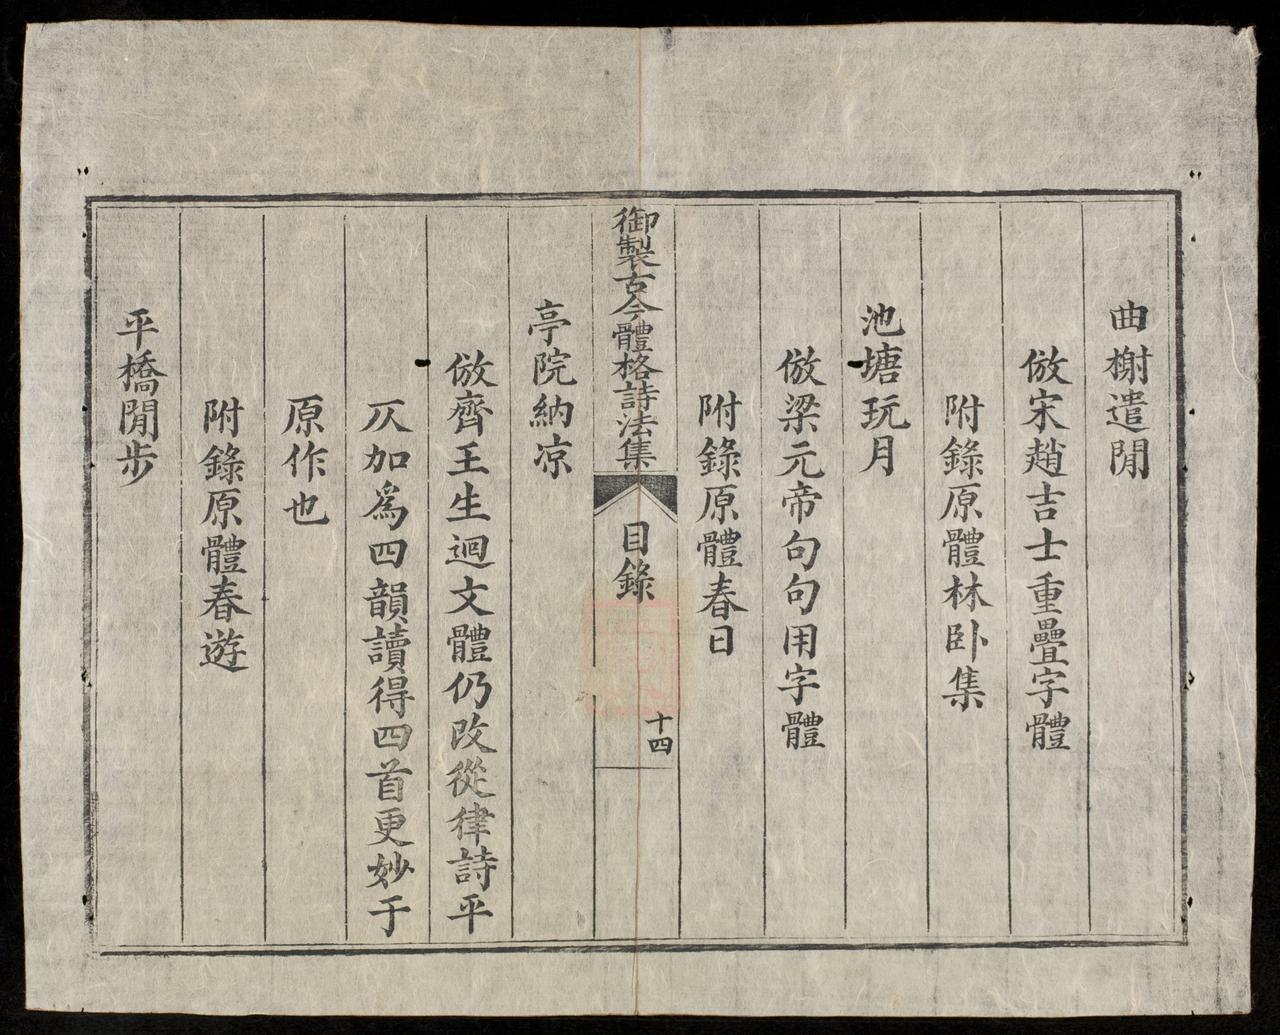 曲榭遣閒
倣宋趙吉士重疊字體
附錄原體林卧集
池塘玩月
倣梁元帝句句用字體
附錄原體春日
御製古今體格詩法集
目錄
十四
亭院納凉
倣齊王生迴文體仍改從律詩平
仄加爲四韻讀得四首更妙于
原作也
附錄原體春遊
平橋閒步